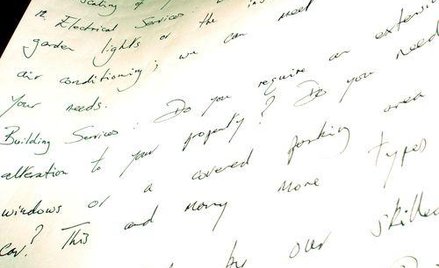 scaling of
12. Electrical Services:
garden lights or the
air conditioning; we can meet
your needs.
Building Services: Do you require an extensive
alteration to your property? Do you need
windows or a covered parking area
car? This and many more types
by our skilled